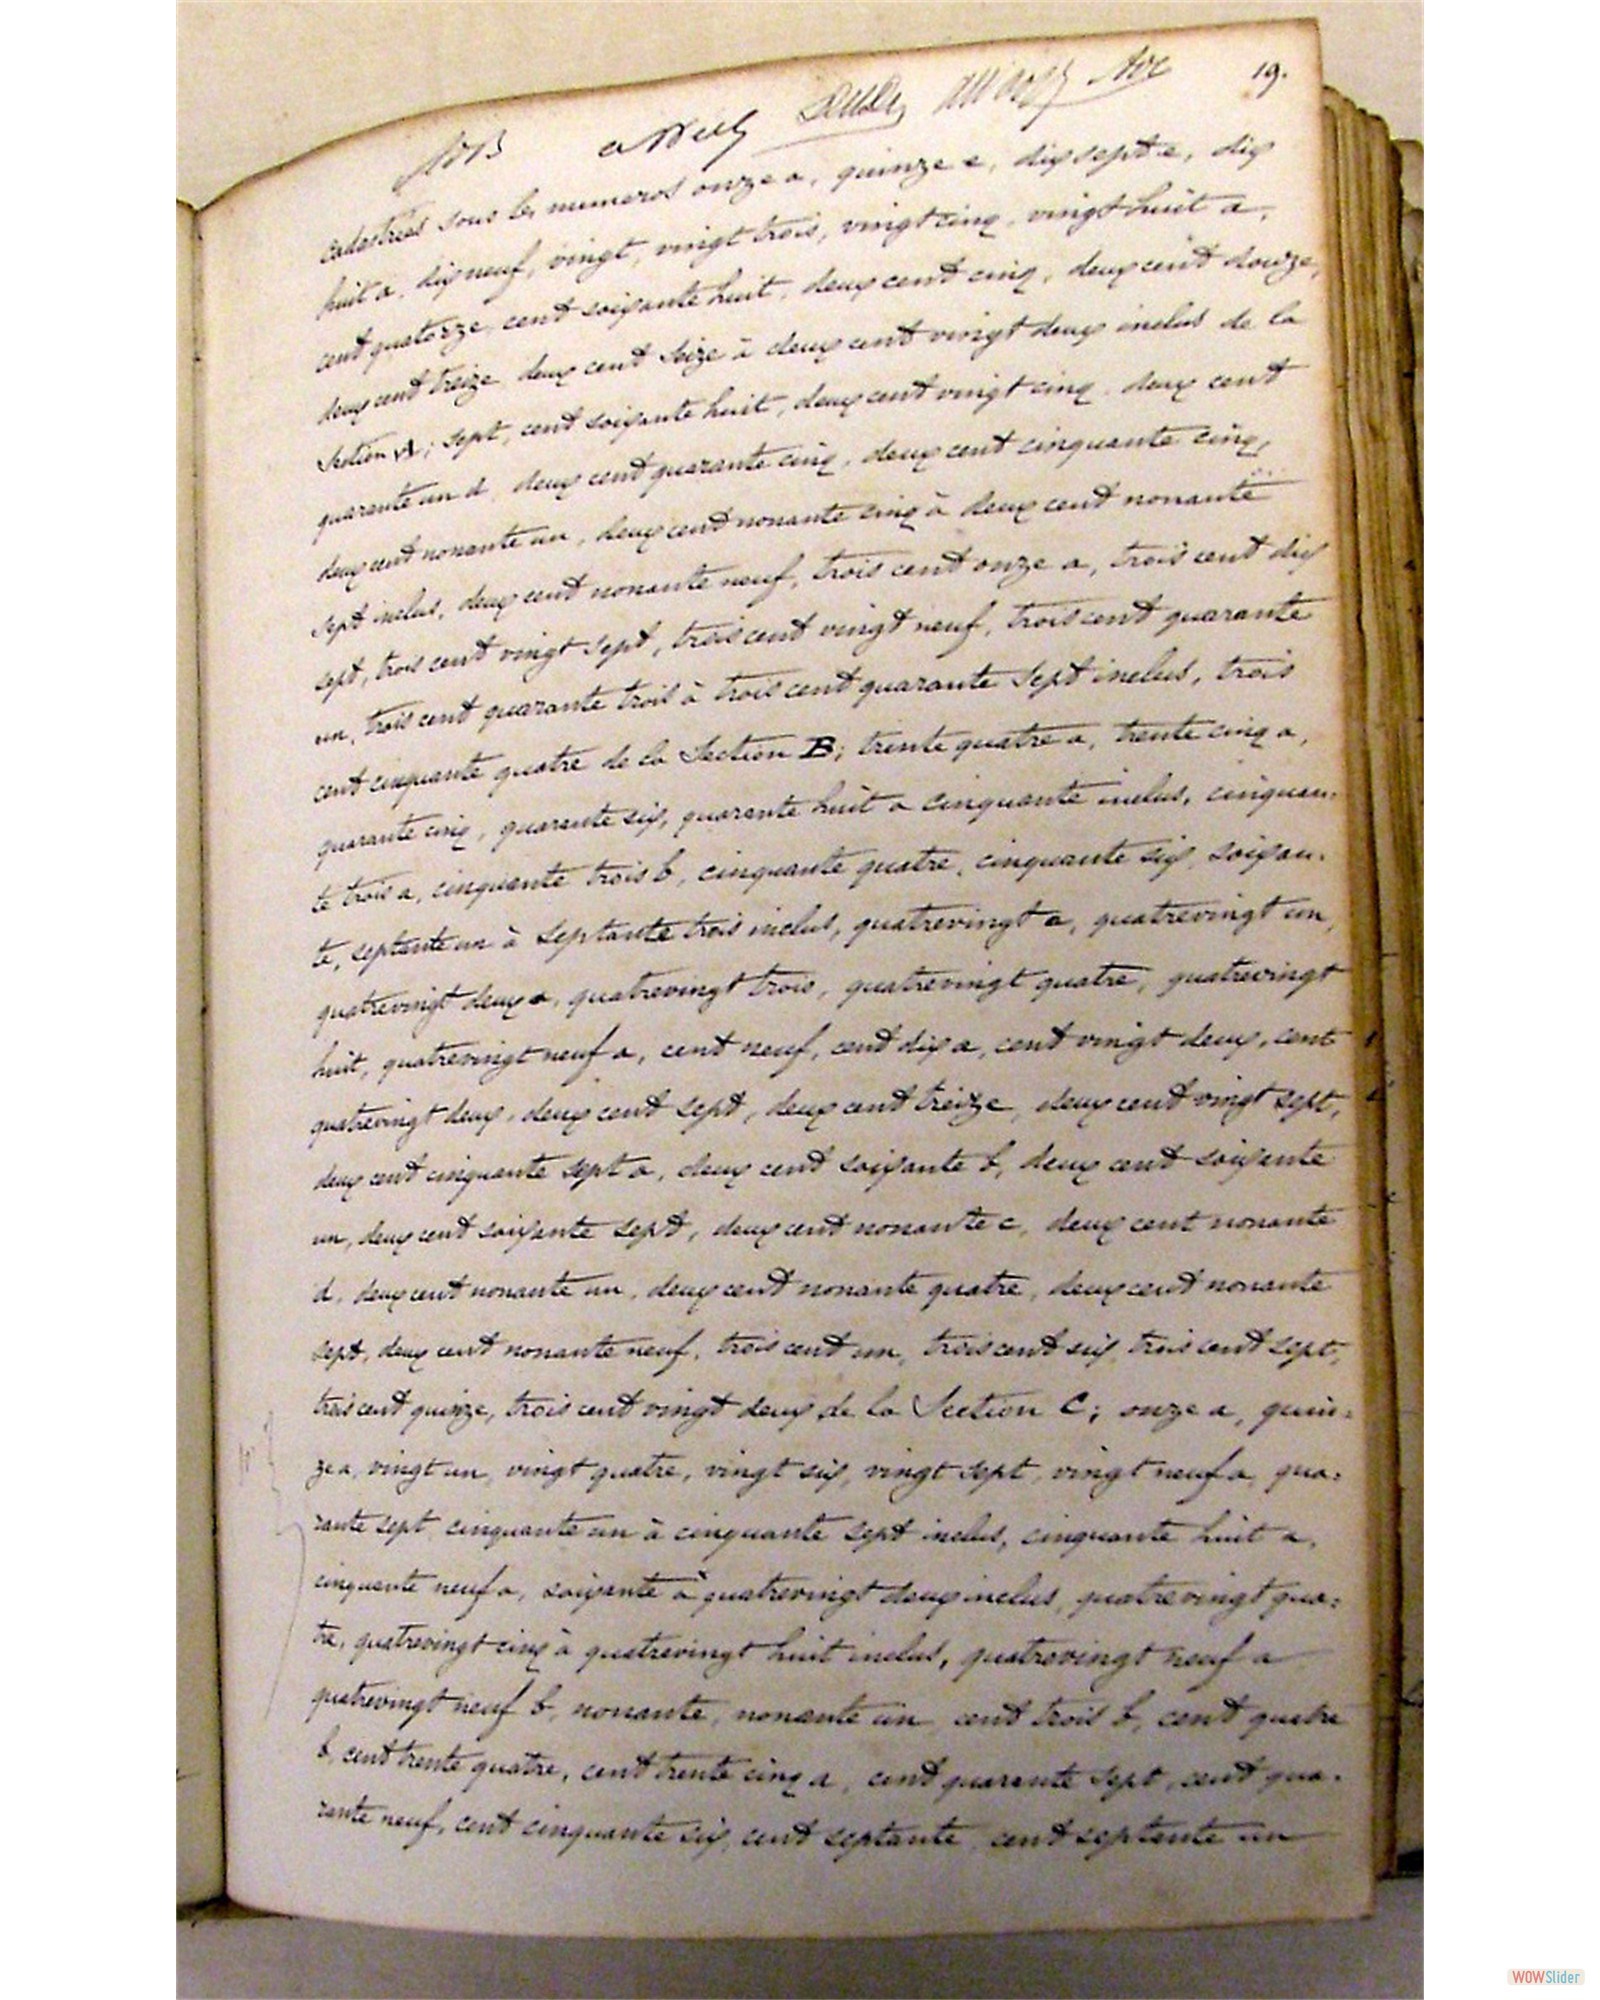 19.
cadastrées sous les numeros onze a, quinze e, dix sept e, dix
huit a, dix neuf, vingt, vingt trois, vingt cinq, vingt huit a,
cent quatorze, cent soixante huit, deux cent cinq, deux cent douze,
deux cent treize, deux cent seize à deux cent vingt deux inclus de la
Section A; sept, cent soixante huit, deux cent vingt cinq, deux cent
quarante un d, deux cent quarante cinq, deux cent cinquante cinq,
deux cent nonante un, deux cent nonante cinq à deux cent nonante
sept inclus, deux cent nonante neuf, trois cent onze a, trois cent dix
sept, trois cent vingt sept, trois cent vingt neuf, trois cent quarante
un, trois cent quarante trois à trois cent quarante sept inclus, trois
cent cinquante quatre de la Section B; trente quatre a, trente cinq a,
quarante cinq, quarante six, quarante huit a cinquante inclus, cinquan-
te trois a, cinquante trois b, cinquante quatre, cinquante six, soixan-
te, septante un à septante trois inclus, quatrevingt a, quatrevingt un,
quatrevingt deux a, quatrevingt trois, quatrevingt quatre, quatrevingt
huit, quatrevingt neuf a, cent neuf, cent dix a, cent vingt deux, cent
quatrevingt deux, deux cent sept, deux cent treize, deux cent vingt sept,
deux cent cinquante sept a, deux cent soixante b, deux cent soixante
un, deux cent soixante sept, deux cent nonante c, deux cent nonante
d, deux cent nonante un, deux cent nonante quatre, deux cent nonante
sept, deux cent nonante neuf, trois cent un, trois cent six, trois cent sept,
trois cent quinze, trois cent vingt deux de la Section C; onze a, quin-
ze a, vingt un, vingt quatre, vingt six, vingt sept, vingt neuf a, qua-
rante sept, cinquante un à cinquante sept inclus, cinquante huit a,
cinquante neuf a, soixante à quatrevingt deux inclus, quatrevingt qua-
tre, quatrevingt cinq à quatrevingt huit inclus, quatrevingt neuf a
quatrevingt neuf b, nonante, nonante un, cent trois b, cent quatre
b, cent trente quatre, cent trente cinq a, cent quarante sept, cent qua-
rante neuf, cent cinquante six, cent septante, cent septante un
WOWSlider